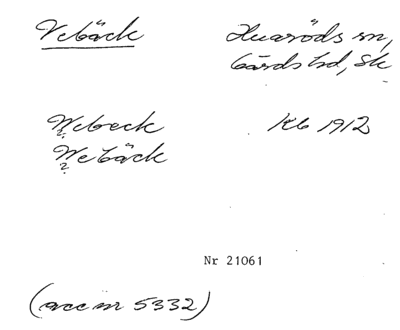 Vebäck
Huaröds sn,
Gärds hd, Sk
Webeck
Kb 1912
?
Webäck
?
Nr 21061
(acc nr 5332)